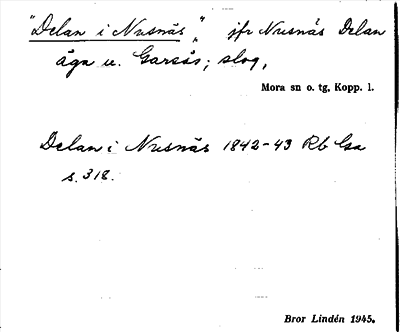 "Delan i Nusnäs", jfr Nusnäs Delan
äga u. Garsås; slog,
Mora sn o. tg, Kopp. l.
Delan i Nusnäs 1842-43 Rb
s. 318.
Bror Lindén 1945.